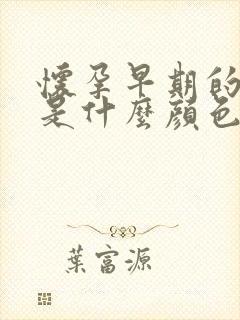 懷孕早期的
是什麼顏色
葉富源